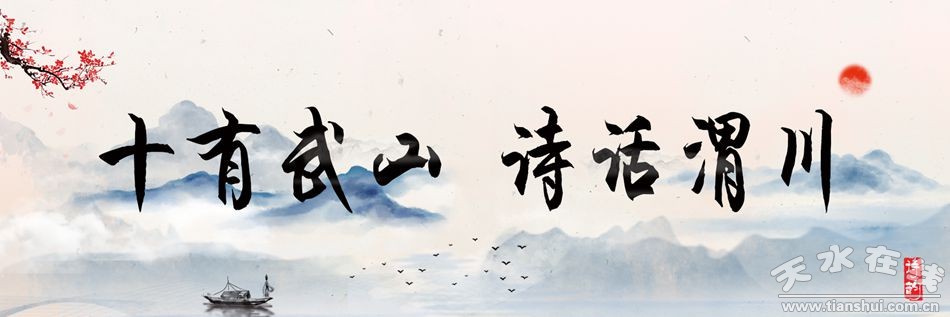 十有武山 诗话渭川
天水在线
www.tianshui.com.cn